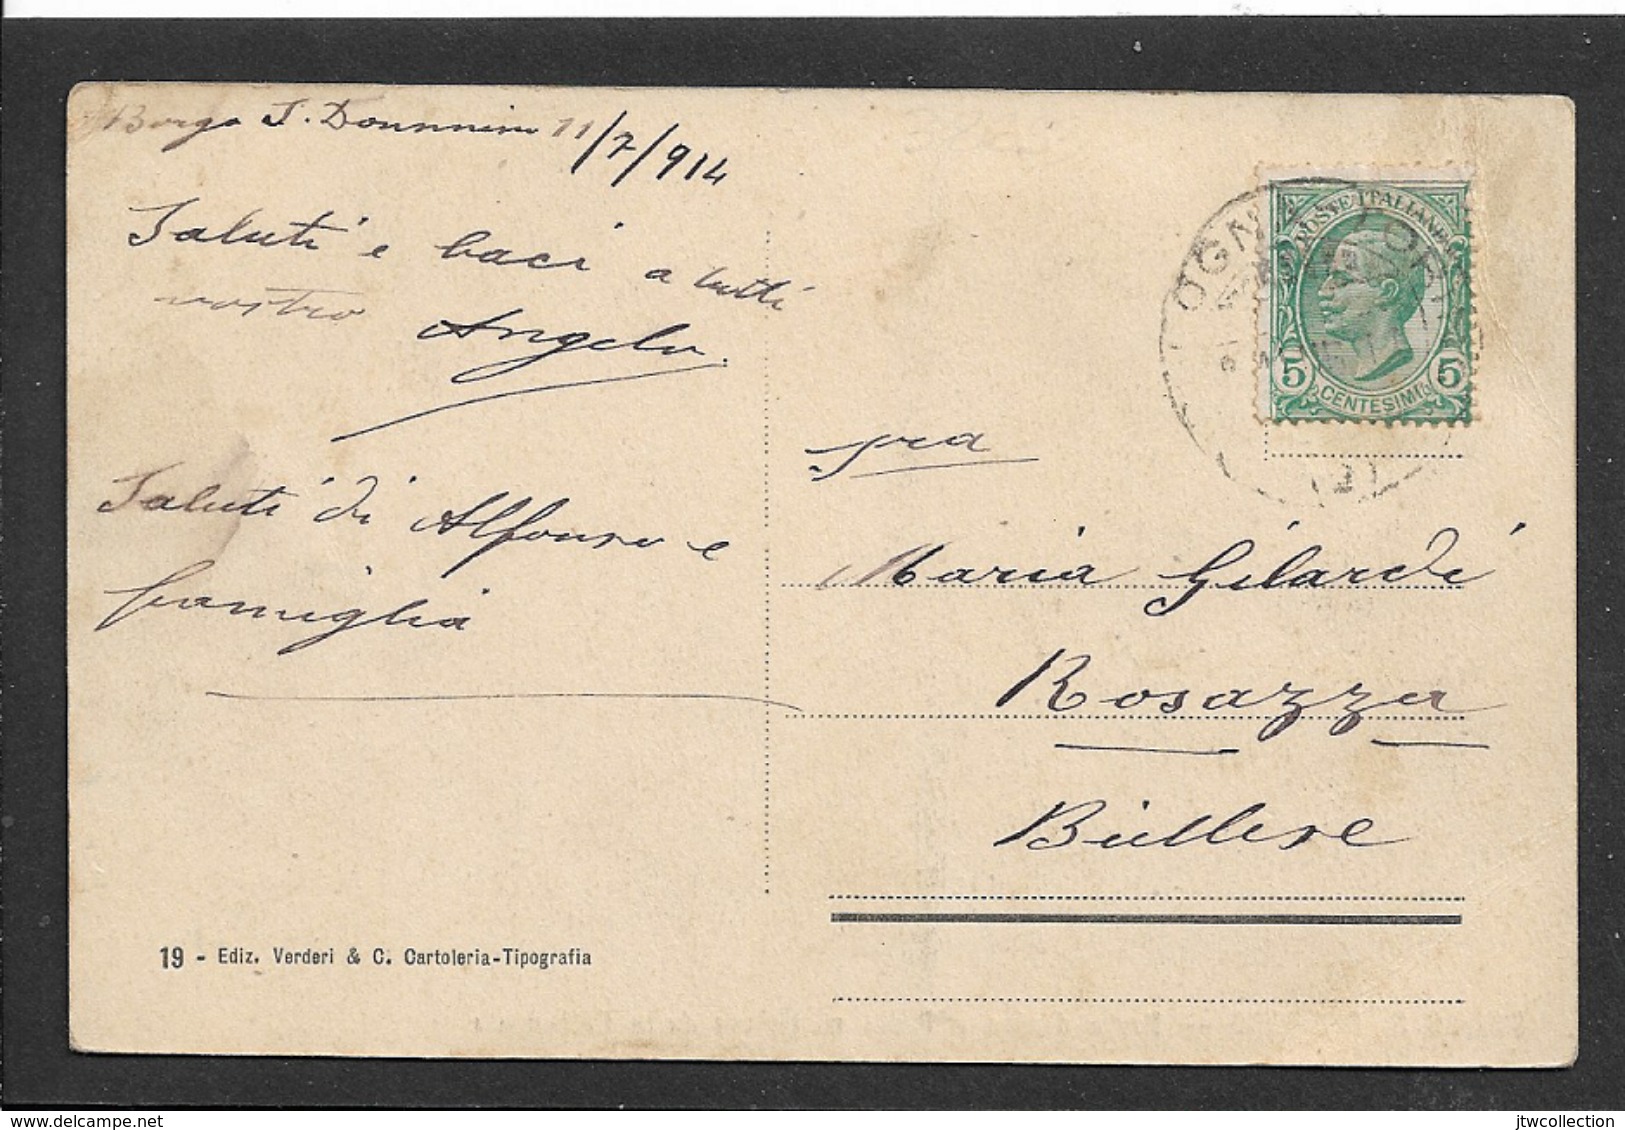 Borgo S. Donnnino 11/7/914
Saluti e baci a tutti
vostro Angelo.
Saluti di Alfonso e
famiglia
19 - Ediz. Verderi & C. Cartoleria-Tipografia
POSTE ITALIANE
5 CENTESIMI 5
(2)
Maria Gilardi
Rosazza
Biellese
jtwcollection